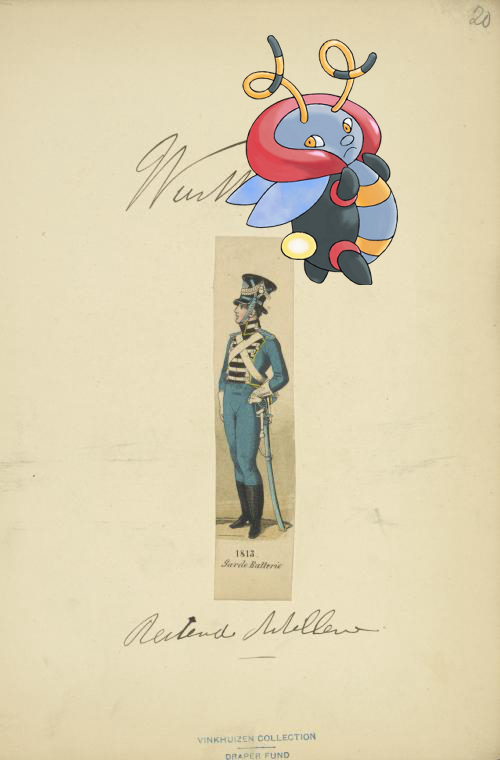 20
1813
Garde Batterie
Reitende Artillerie
VINKHUIZEN COLLECTION
DRAPER FUND